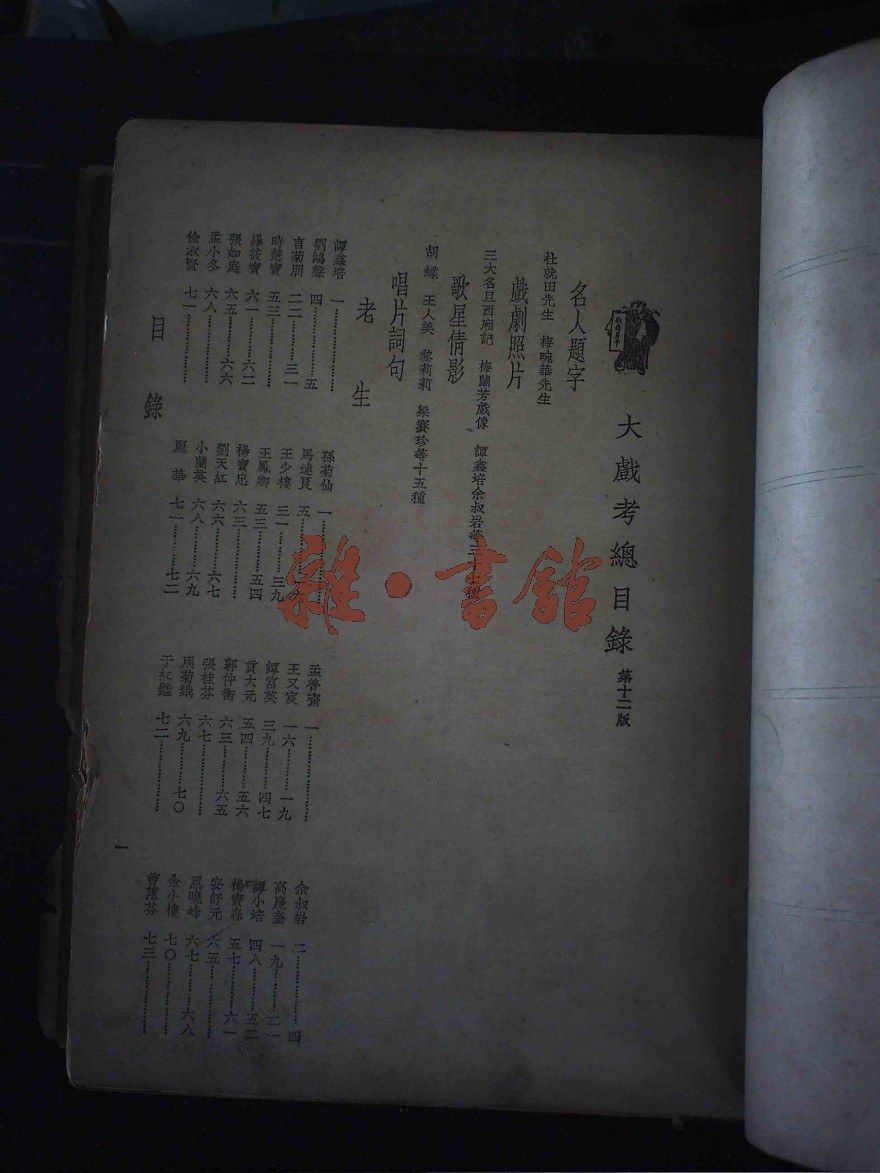 大戲考總目錄 第十二版
名人題字
杜就田先生 梅畹華先生
戲劇照片
三大名旦西廂記 梅蘭芳戲像 譚鑫培余叔岩等三十
歌星倩影
胡蝶 王人美 黎莉莉 梁賽珍等十五種
唱片詞句
老生
譚鑫培 一
孫菊仙 一
孟普齋 一
余叔岩 二 四
劉鴻聲 四 五
馬連良 五
王又宸 一六 一九
高慶奎 一九 二一
言菊朋 二二 三一
王少樓 三一 三九
譚富英 三九 四七
譚小培 四八 五二
時慧寶 五三
王鳳卿 五三 五四
貫大元 五四 五六
楊寶森 五七 六一
羅筱寶 六一 六二
楊寶忠 六三
郭仲衡 六三 六五
安舒元 六五
張如庭 六五 六六
劉天紅 六六 六七
張桂芬 六七
六七 六八
孟小冬 六八
小蘭英 六八 六九
周菊娥 六九 七〇
金小樓 七〇
徐淑賢 七一
龐華 七一 七二
于紅鑑 七二
曹蕙芬 七三
目錄
一
雜·書館